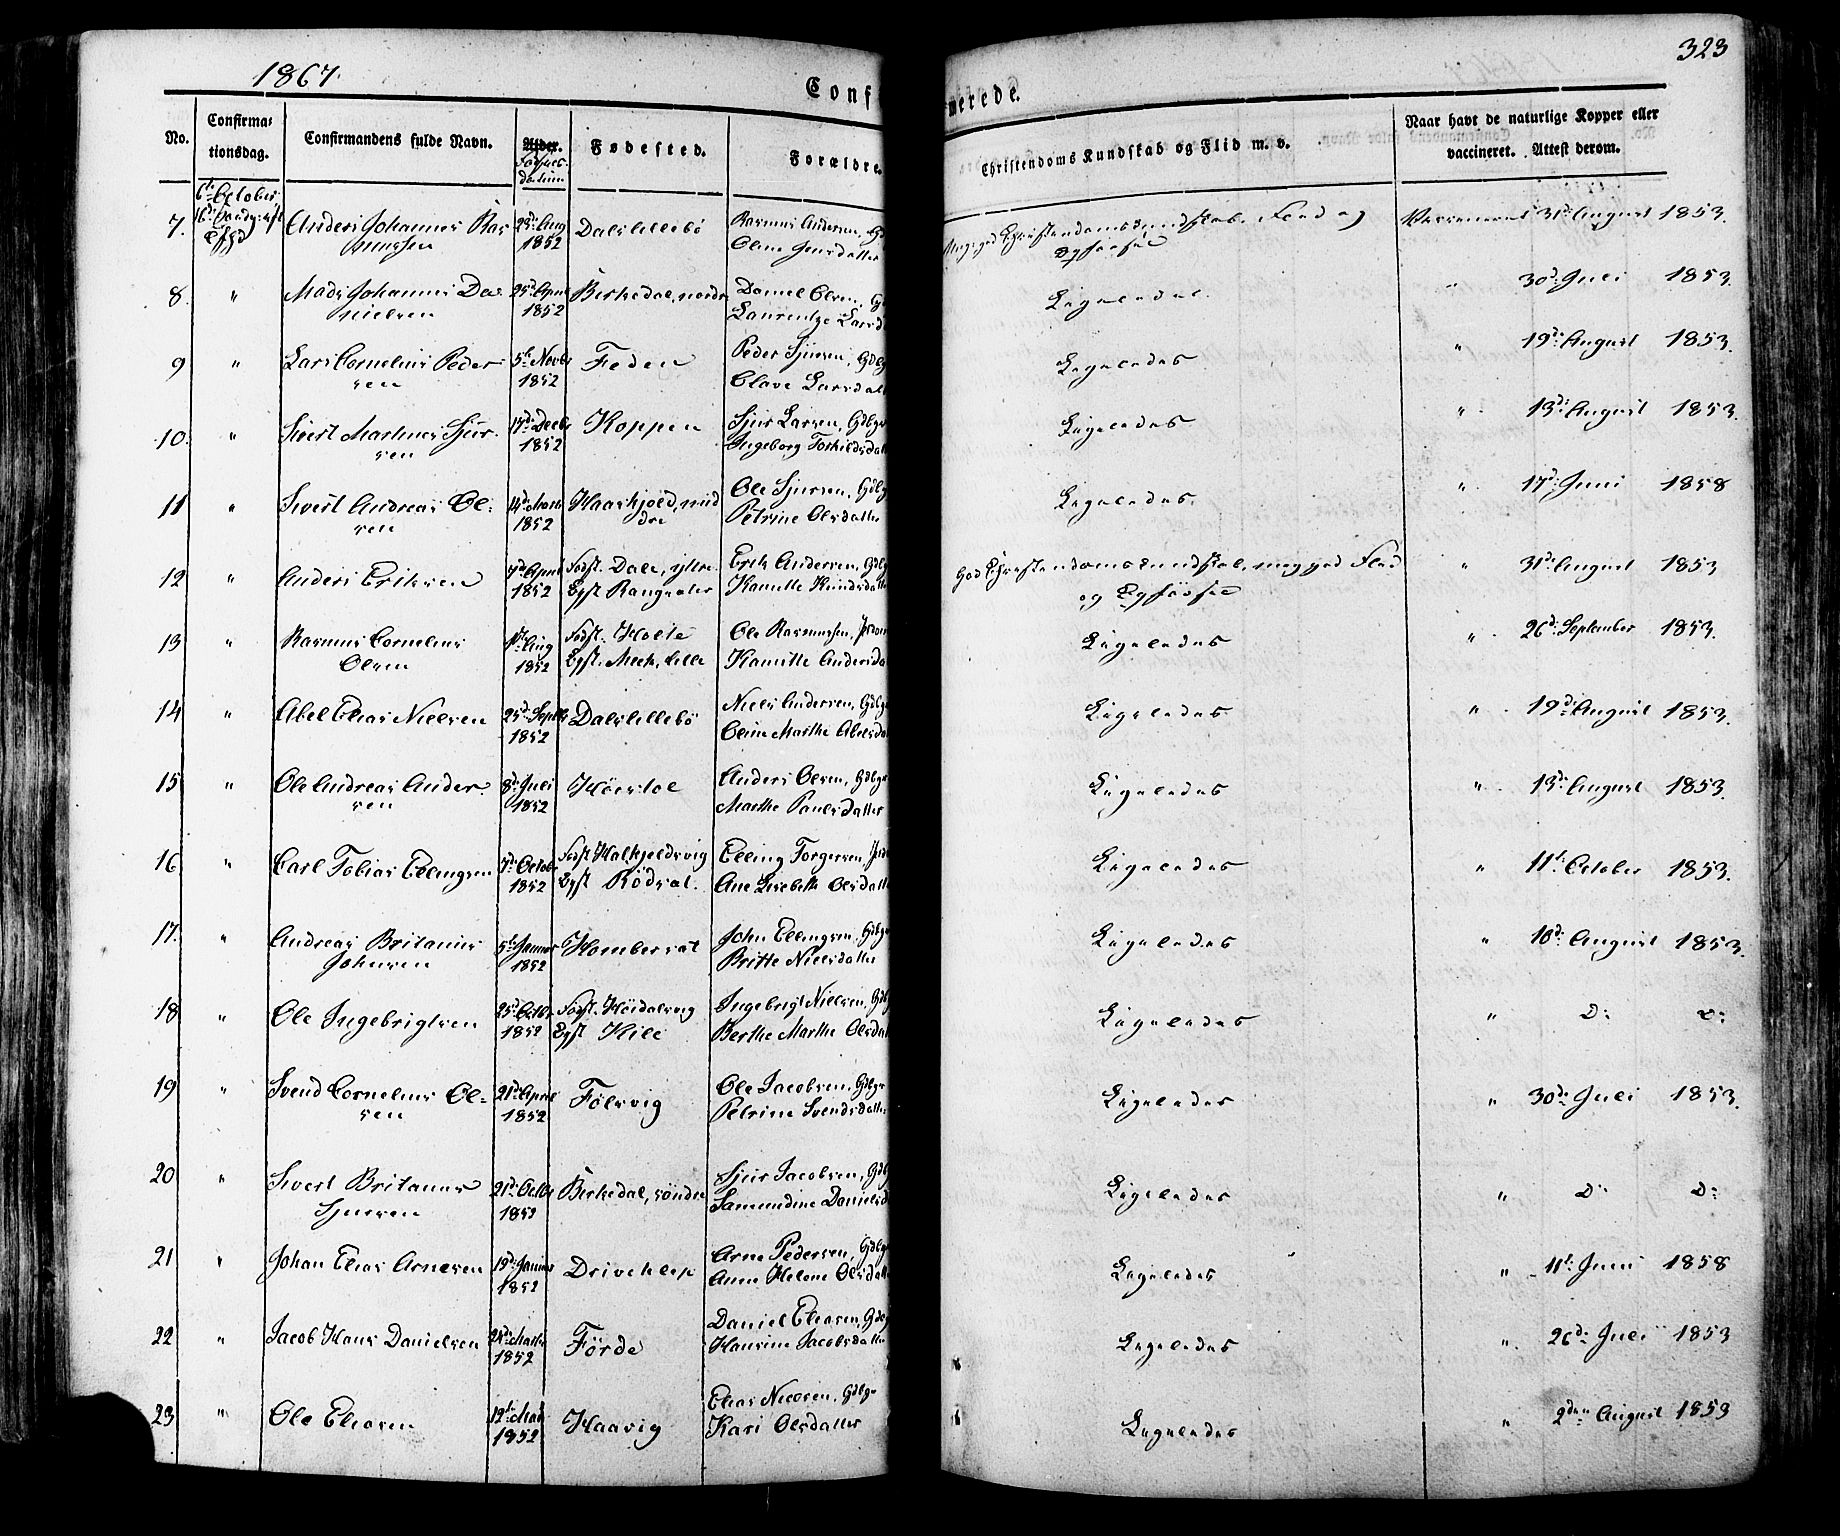 323
1867.
Conf
merede.
No.
Confirma-
tionsdag.
Confirmandens fulde Navn.
Alder.
Fødsels-
datum
Fødested.
Forældre
Christendoms Kundskab og Flid m. v.
Naar havt de naturlige Kopper eller
vaccineret. Attest derom.
6te October
16de Søndag
7. Anders Johannes Ras
mussen
23d Aug
1852
Dalslillebö
Rasmus Andersen, G
Oline Jensdatter
Meg. god Christendomskundskab, Flid og
Opförsel
Vaccineret 31d: August 1853.
8. " Mads Johannes Da-
nielsen
25d: April
1852
Birkedal, nordre
Daniel Olsen, G
Laurentze Larsd
Ligeledes. " 30d: Juli 1853.
9 " Lars Cornelius Peder-
sen
5te Novbr
1852
Feden
Peder Sjursen, Gdbgr
Olave Larsdat
Ligeledes " 19d: August 1853.
10. " Sivert Martinus Sjur-
sen
17d: Decbr
1852
Koppen
Sjur Larsen, Gdbgr
Ingeborg Torkildsdatt
Ligeledes " 13d: August 1853.
11 " Sivert Andreas Ol-
sen
1852
Haaskjold, mid
dre
Ole Sjursen, Gdbg
Petrine Olsdatter
Ligeledes. " 17d: Juni 1858
12 " Anders Eriksen
7d: April
1852
Födst. Dale, ytre.
Erik Andersen, Gdbg
Kamille Knudsdatt
God Christendomskundskab, meg. god Flid
og Opförsel
" 31d: August 1853
13 " Rasmus Cornelius
Olsen
1st: Aug
1852
Födst. Holte
Ole Rasmussen,
Kamille Andersda
Ligeledes " 26d: September 1853.
14 " Abel Elias Nielsen
25d: Septbr
1852
Dalslillebö
Niels Andersen, Gdbgr
Oline Marthe Abelsda
Ligeledes " 19d: August 1853.
15 " Ole Andreas Ander-
sen
8d: Juli
1852
Anders Olsen, Gdbgr
Marthe Paulsdatter
Ligeledes " 13d: August 1853.
16 " Carl Tobias Ellingsen
7d: Octobr
1852
Födst Halkjeldsvig
Rödsæt.
Elling Torgersen,
Ane Lisebeth Olsdatt
Ligeledes " 11te October 1853.
17. " Andreas Britanius
Johnsen
5te Januar
1852
Homborsæt
John Ellingsen, Gdbgr
Britte Nielsdatter
Ligeledes " 10d: August 1853.
18 " Ole Ingebrigtsen
25d: Octbr
1852
Födst. Höidalsvig
Ingebrigt Nielsen, Gdb
Berthe Marthe Olsdat
Ligeledes " D: D:
19 " Svend Cornelius Ol-
sen
21d: April
1852
Fölsvig
Ole Jacobsen, Gdbgr
Petrine Svendsdatter
Ligeledes " 30d: Juli 1853.
20 " Sivert Britanus
Sjursen
21d: Octbr
1852
Birkedal, söndre
Sjur Jacobsen, Gdb
Samundine Danielsd
Ligeledes " D: D:
21 " Johan Elias Arnesen
19d: Januar
1852
Driveklep
Arne Pedersen, Gdbgr
Anne Helene Olsdatt
Ligeledes " 11te: Juni 1858
22 " Jacob Hans Danielsen
1852
Förde
Daniel Eliasen, Gdbg
Hansine Jacobsdatter
Ligeledes " 26d: Juli 1853
23 " Ole Eliasen
12te
1852
Haavig
Elias Nielsen, Gdbgr
Kari Olsdatter
Ligeledes " 2den August 1853